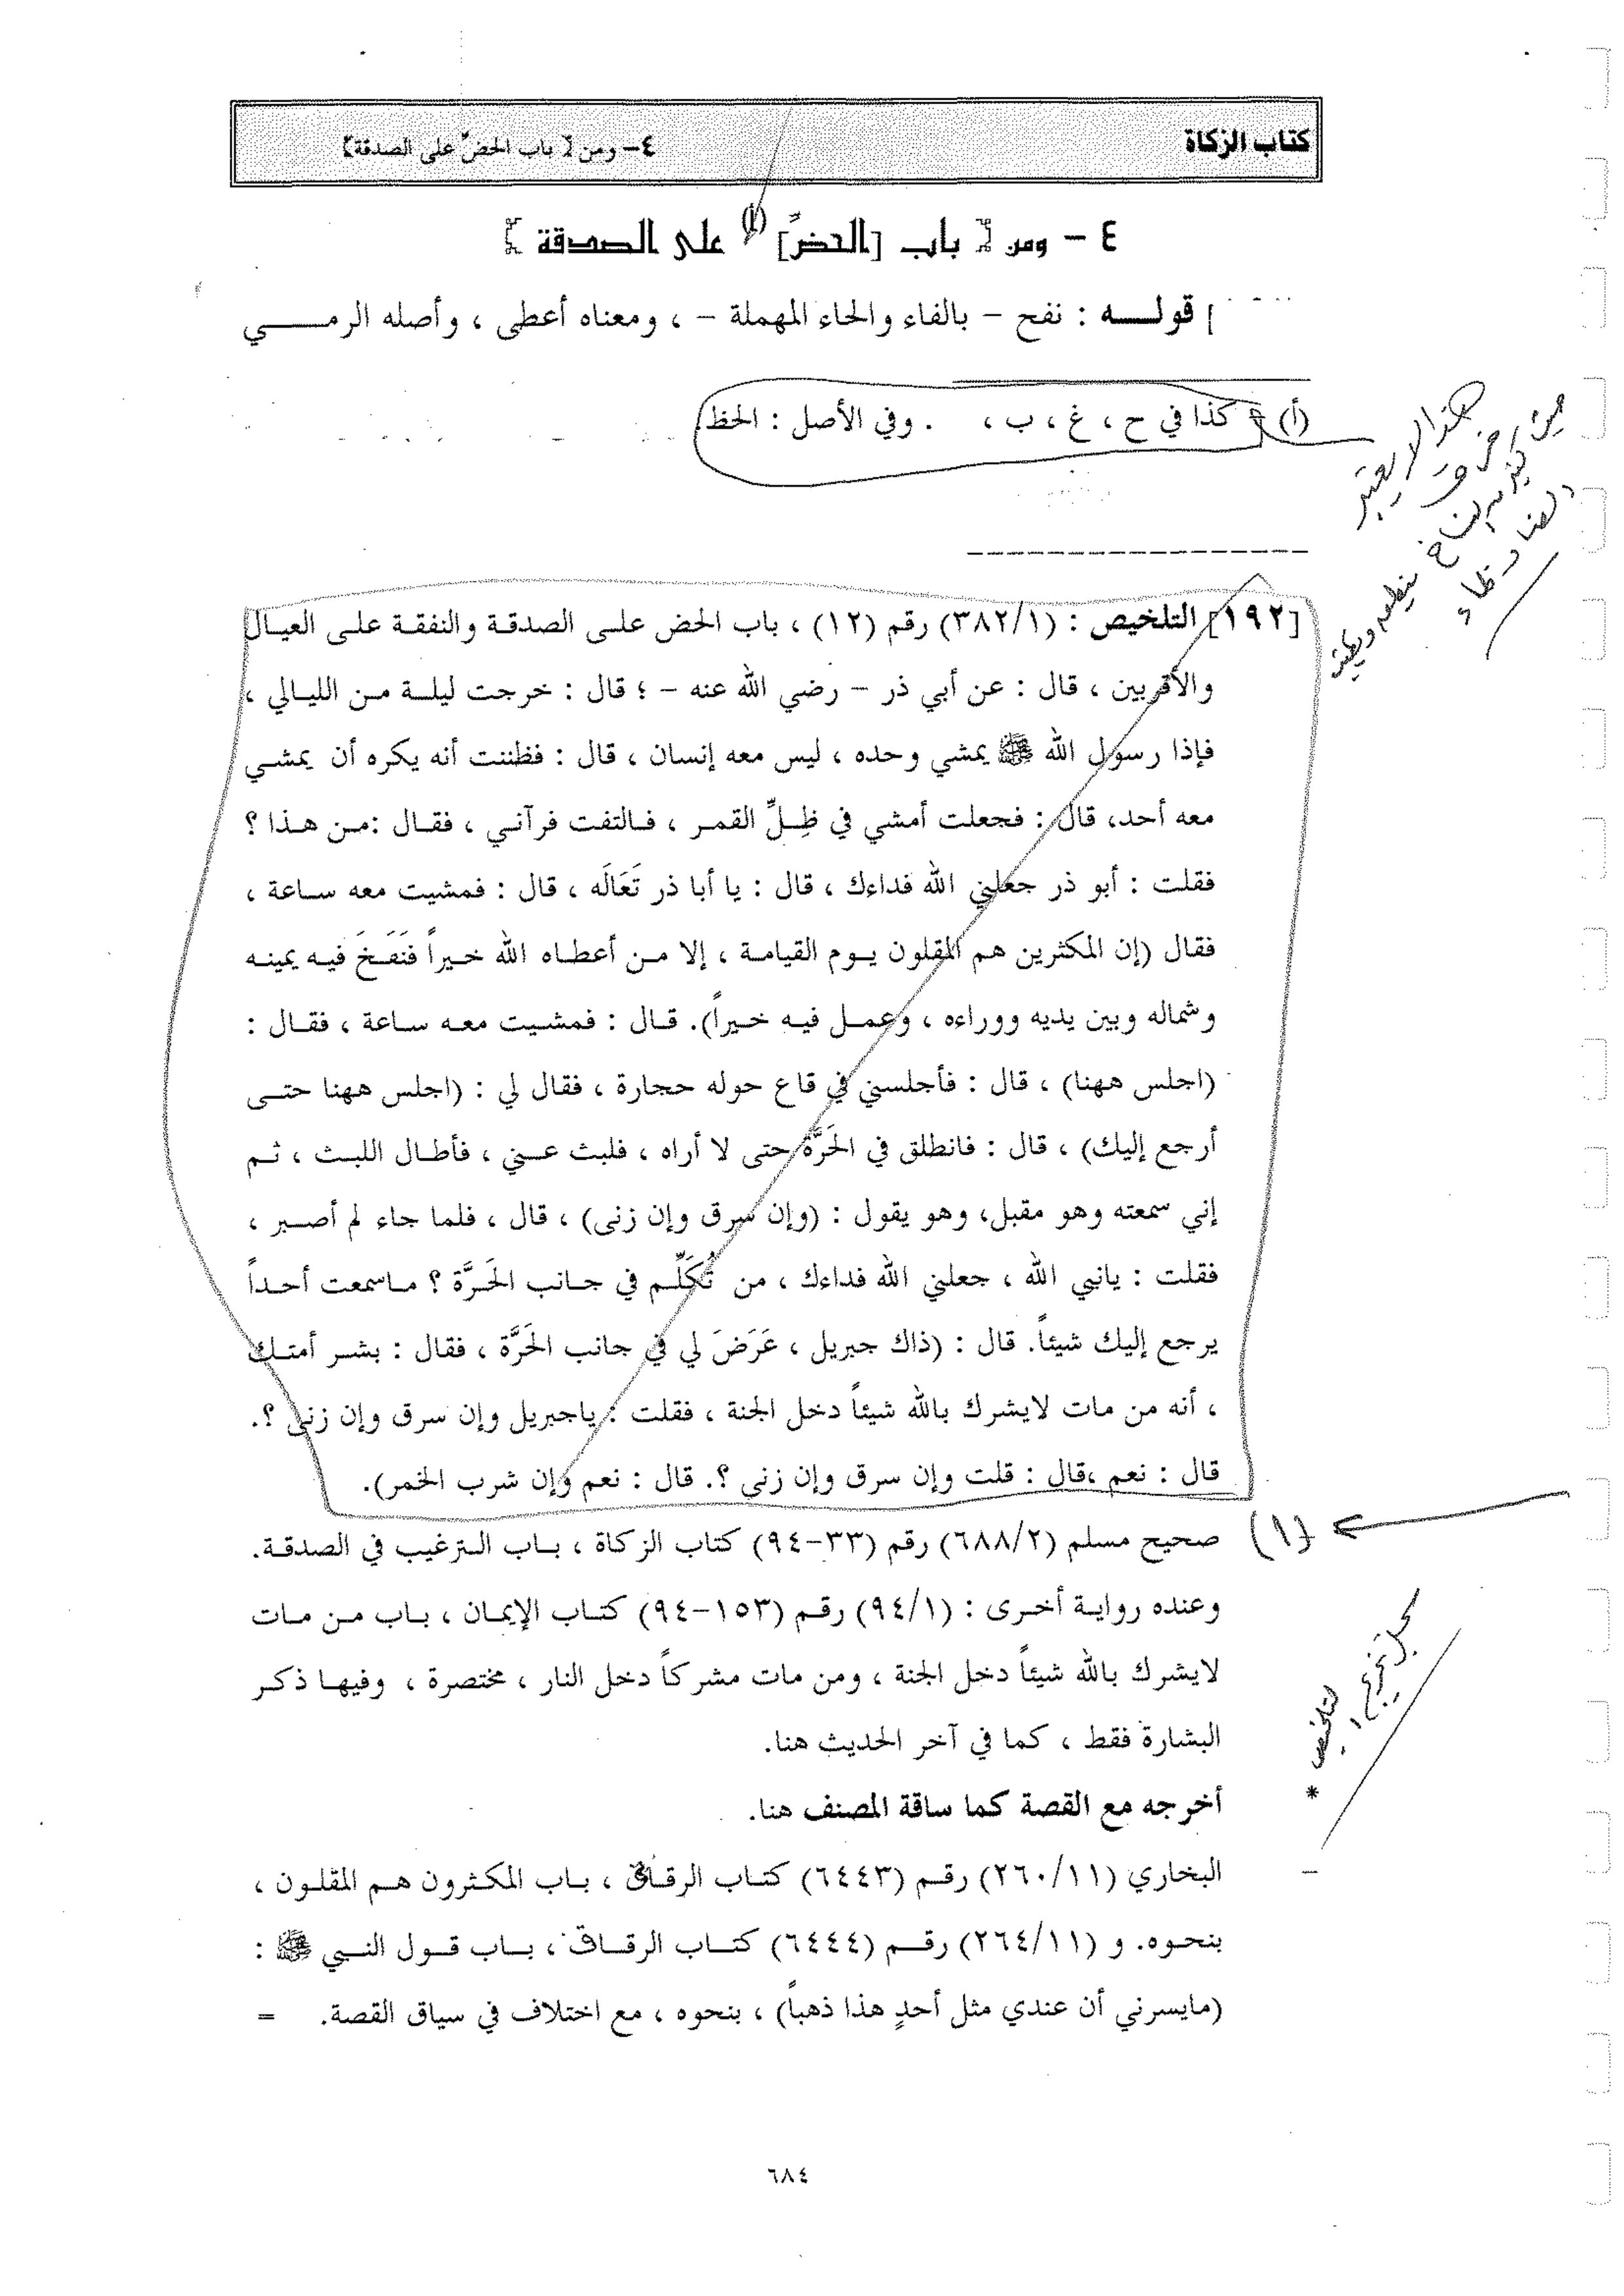 كتاب الزكاة
٤- ومن [ باب الحضّ على الصدقة]
٤ - ومن [ باب [الحضّ] (أ) على الصدقة ]
[ قولـــه : نفح - بالفاء والحاء المهملة - ، ومعناه أعطى ، وأصله الرمـــــي
(أ) كذا في ح ، غ ، ب ، . وفي الأصل : الحظ
هذا لا يعتبر
فرق
[١٩٢] التلخيص : (٣٨٢/١) رقم (١٢) ، باب الحض علـى الصدقـة والنفقـة علـى العيـال
والأقربين ، قال : عن أبي ذر - رضي الله عنه - ؛ قال : خرجت ليلـة مـن الليـالي ،
فإذا رسول الله ﷺ يمشي وحده ، ليس معه إنسان ، قال : فظننت أنه يكره أن يمشـي
معه أحد، قال : فجعلت أمشي في ظِـلِّ القمـر ، فـالتفت فرآنـي ، فقـال :مـن هـذا ؟
فقلت : أبو ذر جعلني الله فداءك ، قال : يا أبا ذر تَعَالَه ، قال : فمشيت معه سـاعة ،
فقال (إن المكثرين هم المقلون يـوم القيامـة ، إلا مـن أعطـاه الله خـيراً فَنَفَـخَ فيـه يمينـه
وشماله وبين يديه ووراءه ، وعمـل فيـه خـيراً). قـال : فمشـيت معـه سـاعة ، فقـال :
(اجلس ههنا) ، قال : فأجلسني في قاع حوله حجارة ، فقال لي : (اجلس ههنا حتـى
أرجع إليك) ، قال : فانطلق في الحَرَّة حتى لا أراه ، فلبث عـني ، فأطـال اللبـث ، ثـم
إني سمعته وهو مقبل، وهو يقول : (وإن سرق وإن زنى) ، قال ، فلما جاء لم أصـبر ،
فقلت : يانبي الله ، جعلني الله فداءك ، من تُكَلِّـم في جـانب الحَـرَّة ؟ مـاسمعت أحـداً
يرجع إليك شيئاً. قال : (ذاك جبريل ، عَرَضَ لي في جانب الحَرَّة ، فقال : بشـر أمتـك
، أنه من مات لايشرك بالله شيئاً دخل الجنة ، فقلت : ياجبريل وإن سرق وإن زنى ؟.
قال : نعم ،قال : قلت وإن سرق وإن زنى ؟. قال : نعم وإن شرب الخمر).
(١) صحيح مسلم (٦٨٨/٢) رقم (٣٣-٩٤) كتاب الزكاة ، بـاب الـترغيب في الصدقـة.
وعنده روايـة أخـرى : (٩٤/١) رقـم (١٥٣-٩٤) كتـاب الإيمـان ، بـاب مـن مـات
لايشرك بالله شيئاً دخل الجنة ، ومن مات مشركاً دخل النار ، مختصرة ، وفيهـا ذكـر
البشارة فقط ، كما في آخر الحديث هنا.
* أخرجه مع القصة كما ساقة المصنف هنا.
– البخاري (٢٦٠/١١) رقـم (٦٤٤٣) كتـاب الرقـاق ، بـاب المكـثرون هـم المقلـون ،
بنحـوه. و (٢٦٤/١١) رقـــم (٦٤٤٤) كتــاب الرقــاق ، بــاب قــول النــبي ﷺ :
(مايسرني أن عندي مثل أحدٍ هذا ذهباً) ، بنحوه ، مع اختلاف في سياق القصة. =
٦٨٤